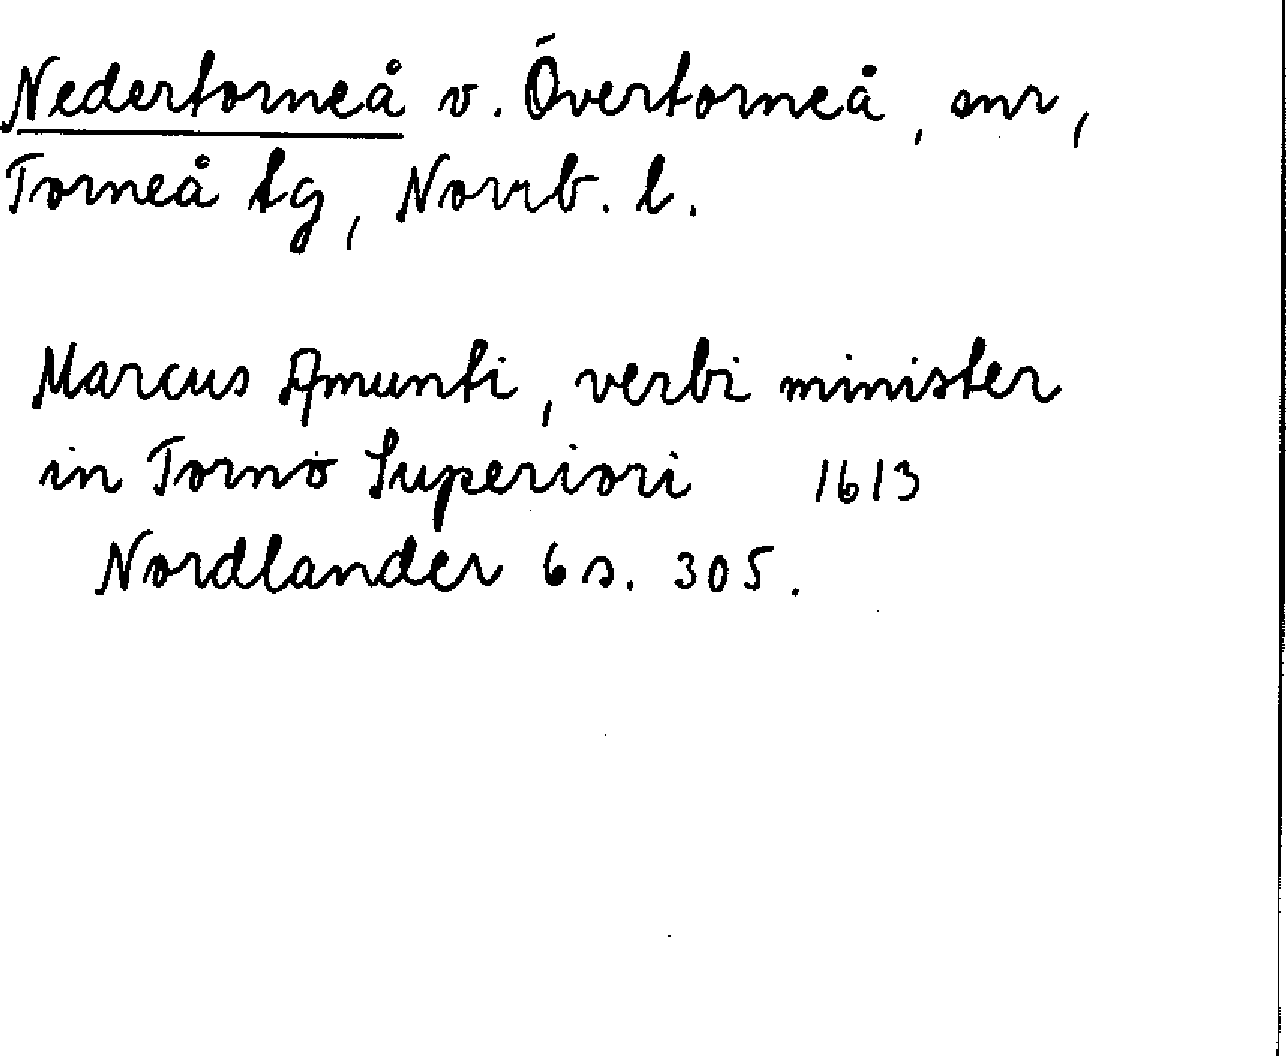 Nedertorneå v. Övertorneå, snr,
Torneå tg, Norrb. l.
Marcus Amunti, verbi minister
in Tornö Superiori 1613
Nordlander 6 s. 305.